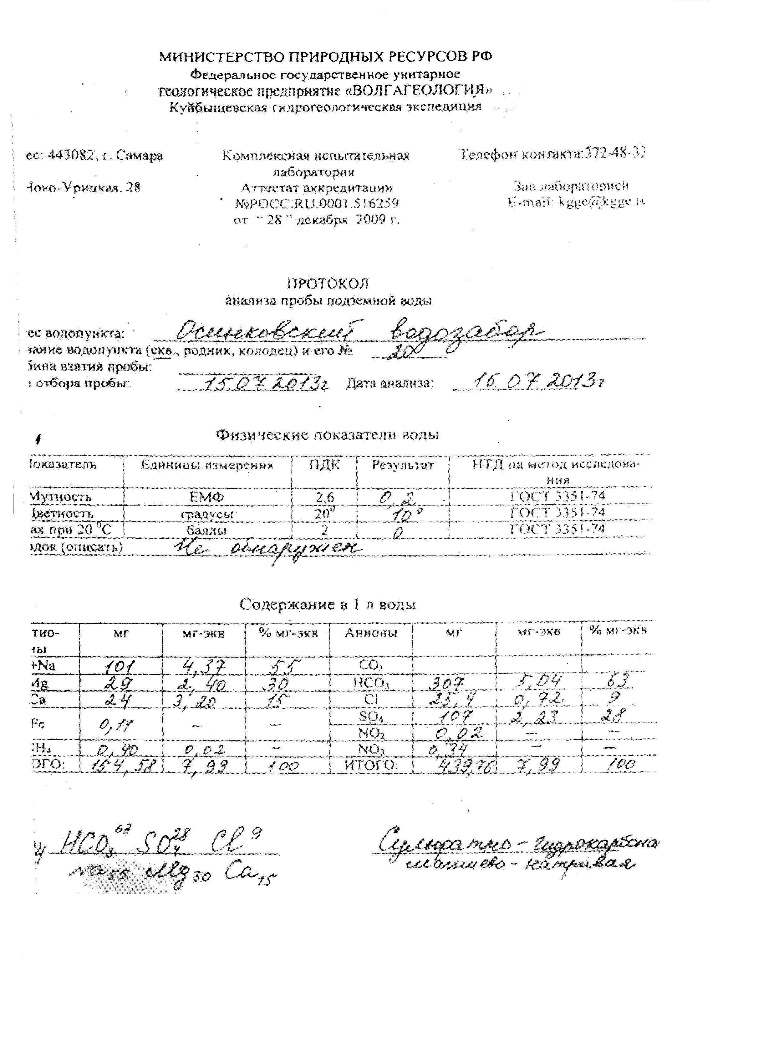 МИНИСТЕРСТВО ПРИРОДНЫХ РЕСУРСОВ РФ
Федеральное государственное унитарное
геологическое предприятие «ВОЛГАГЕОЛОГИЯ»
Куйбышевская гидрогеологическая экспедиция
ес: 443082, г. Самара Комплексная испытательная Телефон контакта:372-48-3
лаборатория
Ново-Урицкая, 28 Аттестат аккредитации Зав лабораторией
№РОСС.RU.0001.516259 E-mail: kgge@kgge
от " 28 " декабря 2009 г.
ПРОТОКОЛ
анализа пробы подземной воды
ес водопункта: Осинковский водозабор
ание водопункта (скв., родник, колодец) и его № 20
бина взятия пробы:
отбора пробы: 15.07.2013г Дата анализа: 16.07.2013г
Физические показатели воды
Показатель Единицы измерения ПДК Результат НТД на метод исследова-
ния
Мутность ЕМФ 2,6 0,2 ГОСТ 3351-74
Цветность градусы 20⁰ 10° ГОСТ 3351-74
ах при 20 ⁰С баллы 2 0 ГОСТ 3351-74
адок (описать) Не обнаружен
Содержание в 1 л воды
тио- мг мг-экв % мг-экв Анионы мг мг-экв % мг-экв
ны
+Na 101 4,37 55 CO₃
Mg 29 2,40 30 HCO₃ 307 5,04 63
Ca 24 3,20 15 Cl 25,4 0,72 9
Fe 0,11 – – SO₄ 107 2,23 28
NO₂ 0,02 – –
NH₄ 0,40 0,02 – NO₃ 0,74 – –
ОГО: 154,58 7,99 100 ИТОГО: 439,76 7,99 100
HCO₃⁶³ SO₄²⁸ Cl⁹ Сульфатно-гидрокарбона
Na₅₅ Mg₃₀ Ca₁₅ магниево-натривая